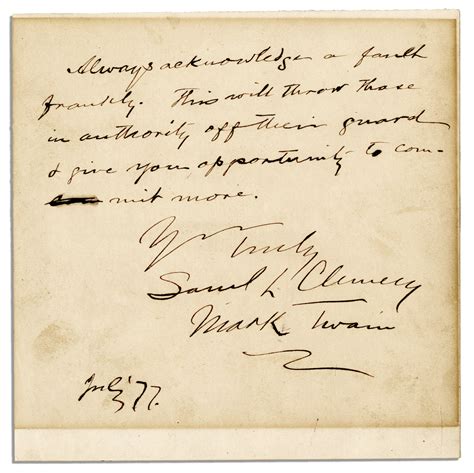 Always acknowledge a fault
frankly. This will throw those
in authority off their guard
& give you opportunity to com-
mit more.
Yrs Truly
Saml L Clemens
Mark Twain
July 77.